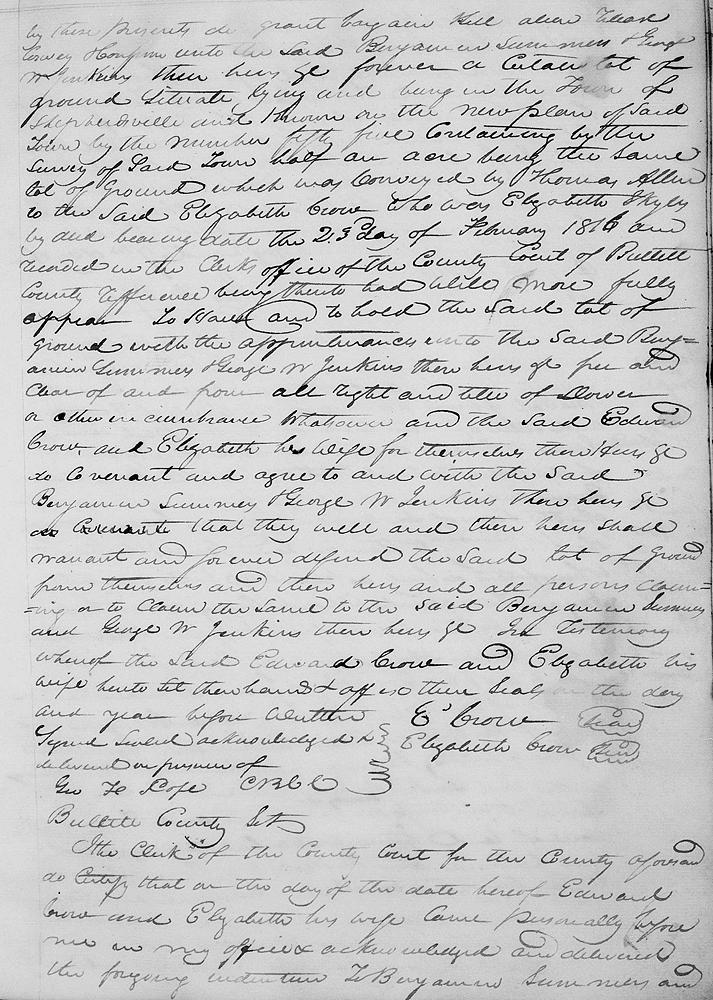 by these presents do grant bargain sell alien release
Convey & Confirm unto the said Benjamin Summers & George
W Jenkins their heirs &c forever a certain lot of
ground situate, lying and being in the Town of
Shepherdsville and known on the new plan of said
Town by the number fifty five Containing by the
survey of said Town half an acre being the same
lot of Ground which was Conveyed by Thomas Allen
to the said Elizabeth Crow who was Elizabeth
by deed bearing date the 23d day of February 1816 and
recorded in the Clerks office of the County Court of Bullitt
County refference being thereto had will more fully
appear To Have and to hold the said lot of
ground with the appurtenances unto the said Benj=
amin Summers & George W Jenkins their heirs &c free and
clear of and from all right and title of Dower
or other incumbrance whatsoever and the said Edward
Crow, and Elizabeth his wife for themselves their Heirs &c
do Covenant and agree to and with the said
Benjamin Summers & George W Jenkins their heirs &c
that they will and their heirs shall
warrant and forever defend the said lot of Ground
from themselves and their heirs and all persons claim=
=ing or to claim the same to the said Benjamin Summers
and George W Jenkins their heirs &c In Testimony
whereof the said Edward Crow and Elizabeth his
wife hereto set their hands & affixo their Seals on the day
and year before written E Crow Seal
Signed sealed acknowledged & Elizabeth Crow Seal
delivered in presence of
Geo F Pope CBCC
Bullitt County Sct
I the Clerk of the County Court for the County aforesaid
do Certify that on the day of the date hereof Edward
Crow and Elizabeth his wife Came personally before
me in my office & acknowledged and delivered
the foregoing indenture To Benjamin Summers and